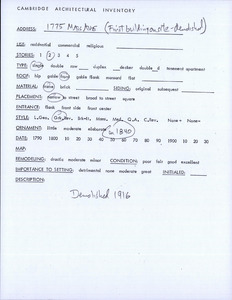 CAMBRIDGE ARCHITECTURAL INVENTORY
ADDRESS: 1775 Mass Ave (First building on site - demolished)
USE: residential commercial religious
STORIES: 1 2 3 4 5
TYPE: single double row duplex decker double d. tenement apartment
ROOF: hip gable flank gable flank mansard flat
MATERIAL: frame brick SETTING: original subsequent
PLACEMENT: narrow to street broad to street square
ENTRANCE: flank front side front center
STYLE:
ORNAMENT: little moderate elaborate in 1840
DATE: 1790 1800 10 20 30 40 50 60 70 80 90 1900 10 20 30
MAP:
REMODELING: drastic moderate minor CONDITION: poor fair good excellent
IMPORTANCE TO SETTING: detrimental none moderate great INITIALED:
DESCRIPTION:
Demolished 1916